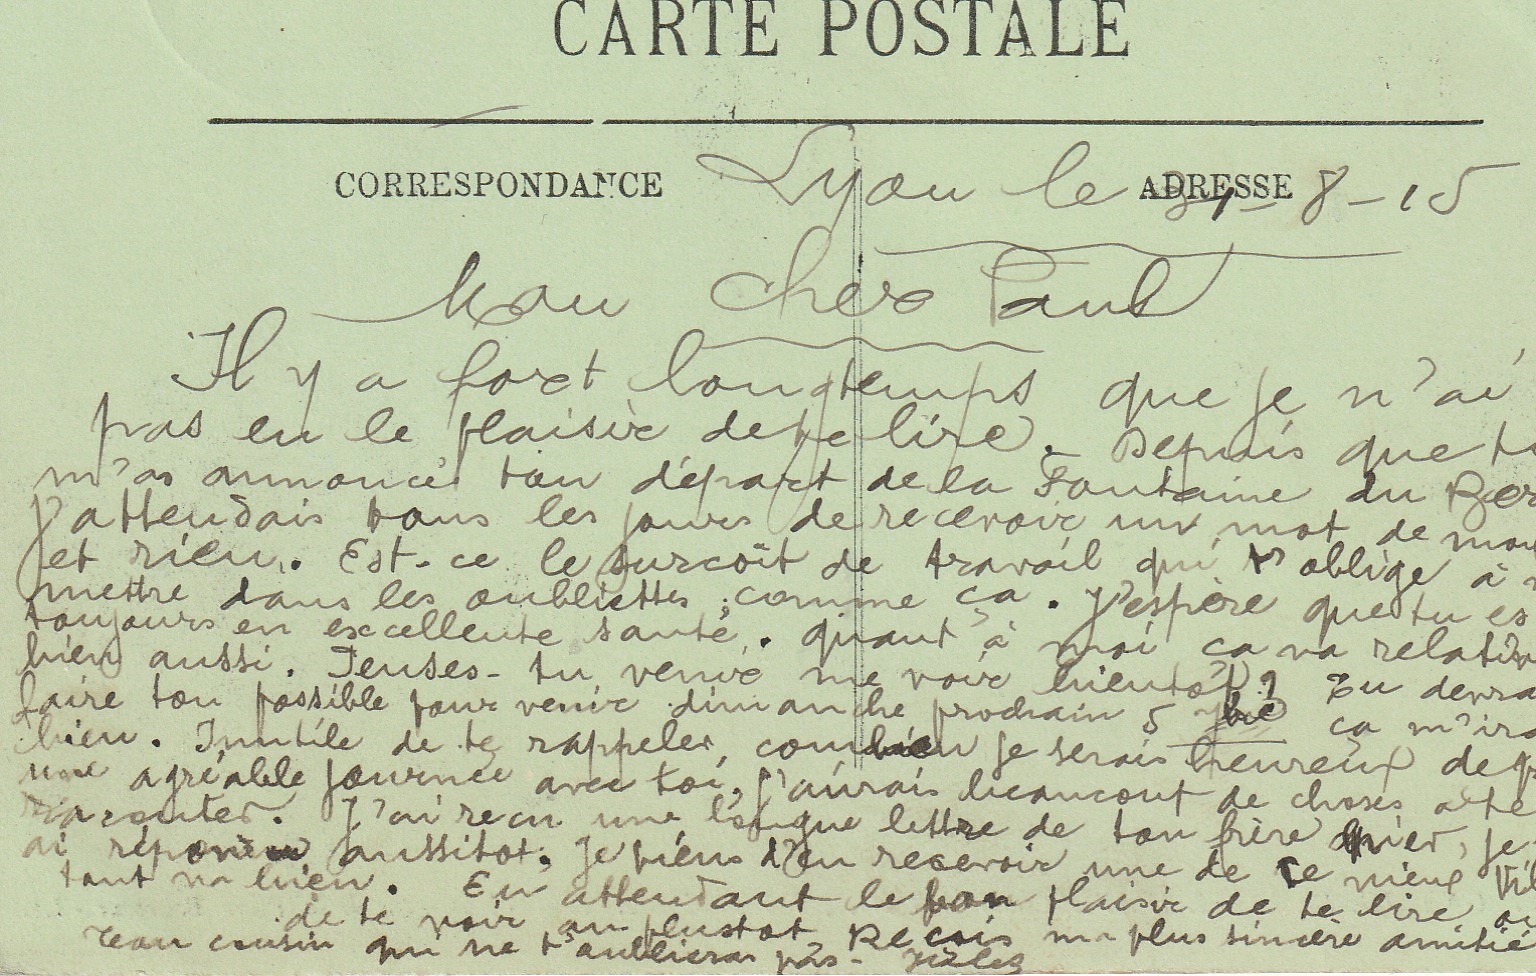 CARTE POSTALE
CORRESPONDANCE
ADRESSE
Lyon le 31-8-15
Mon cher Paul
Il y a fort longtemps que je n'ai
pas eu le plaisir de te lire. Depuis que
m'as annoncé ton départ de la Fontaine du Ber
j'attendais tous les jours de recevoir un mot de
et rien. Est-ce le surcoît de travail qui t'oblige à
mettre dans les oubliettes comme ça. J'espère que tu es
toujours en excellente santé, quant à moi ça va relativ
bien aussi. Penses-tu venir me voir bientôt? Tu devra
faire ton possible pour venir dimanche prochain 5 7bre ça m'ira
bien. Inutile de te rappeler combien je serais heureux de
une agréable journée avec toi, j'aurais beaucoup de choses à te
raconter. J'ai reçu une longue lettre de ton frère hier, je
ai répondu aussitot. Je viens d'en recevoir une de ce vieux
tout va bien. En attendant le bon plaisir de te lire ou
de te voir au plustot Recois ma plus sincère amitié
ton cousin qui ne t'oubliera pas-